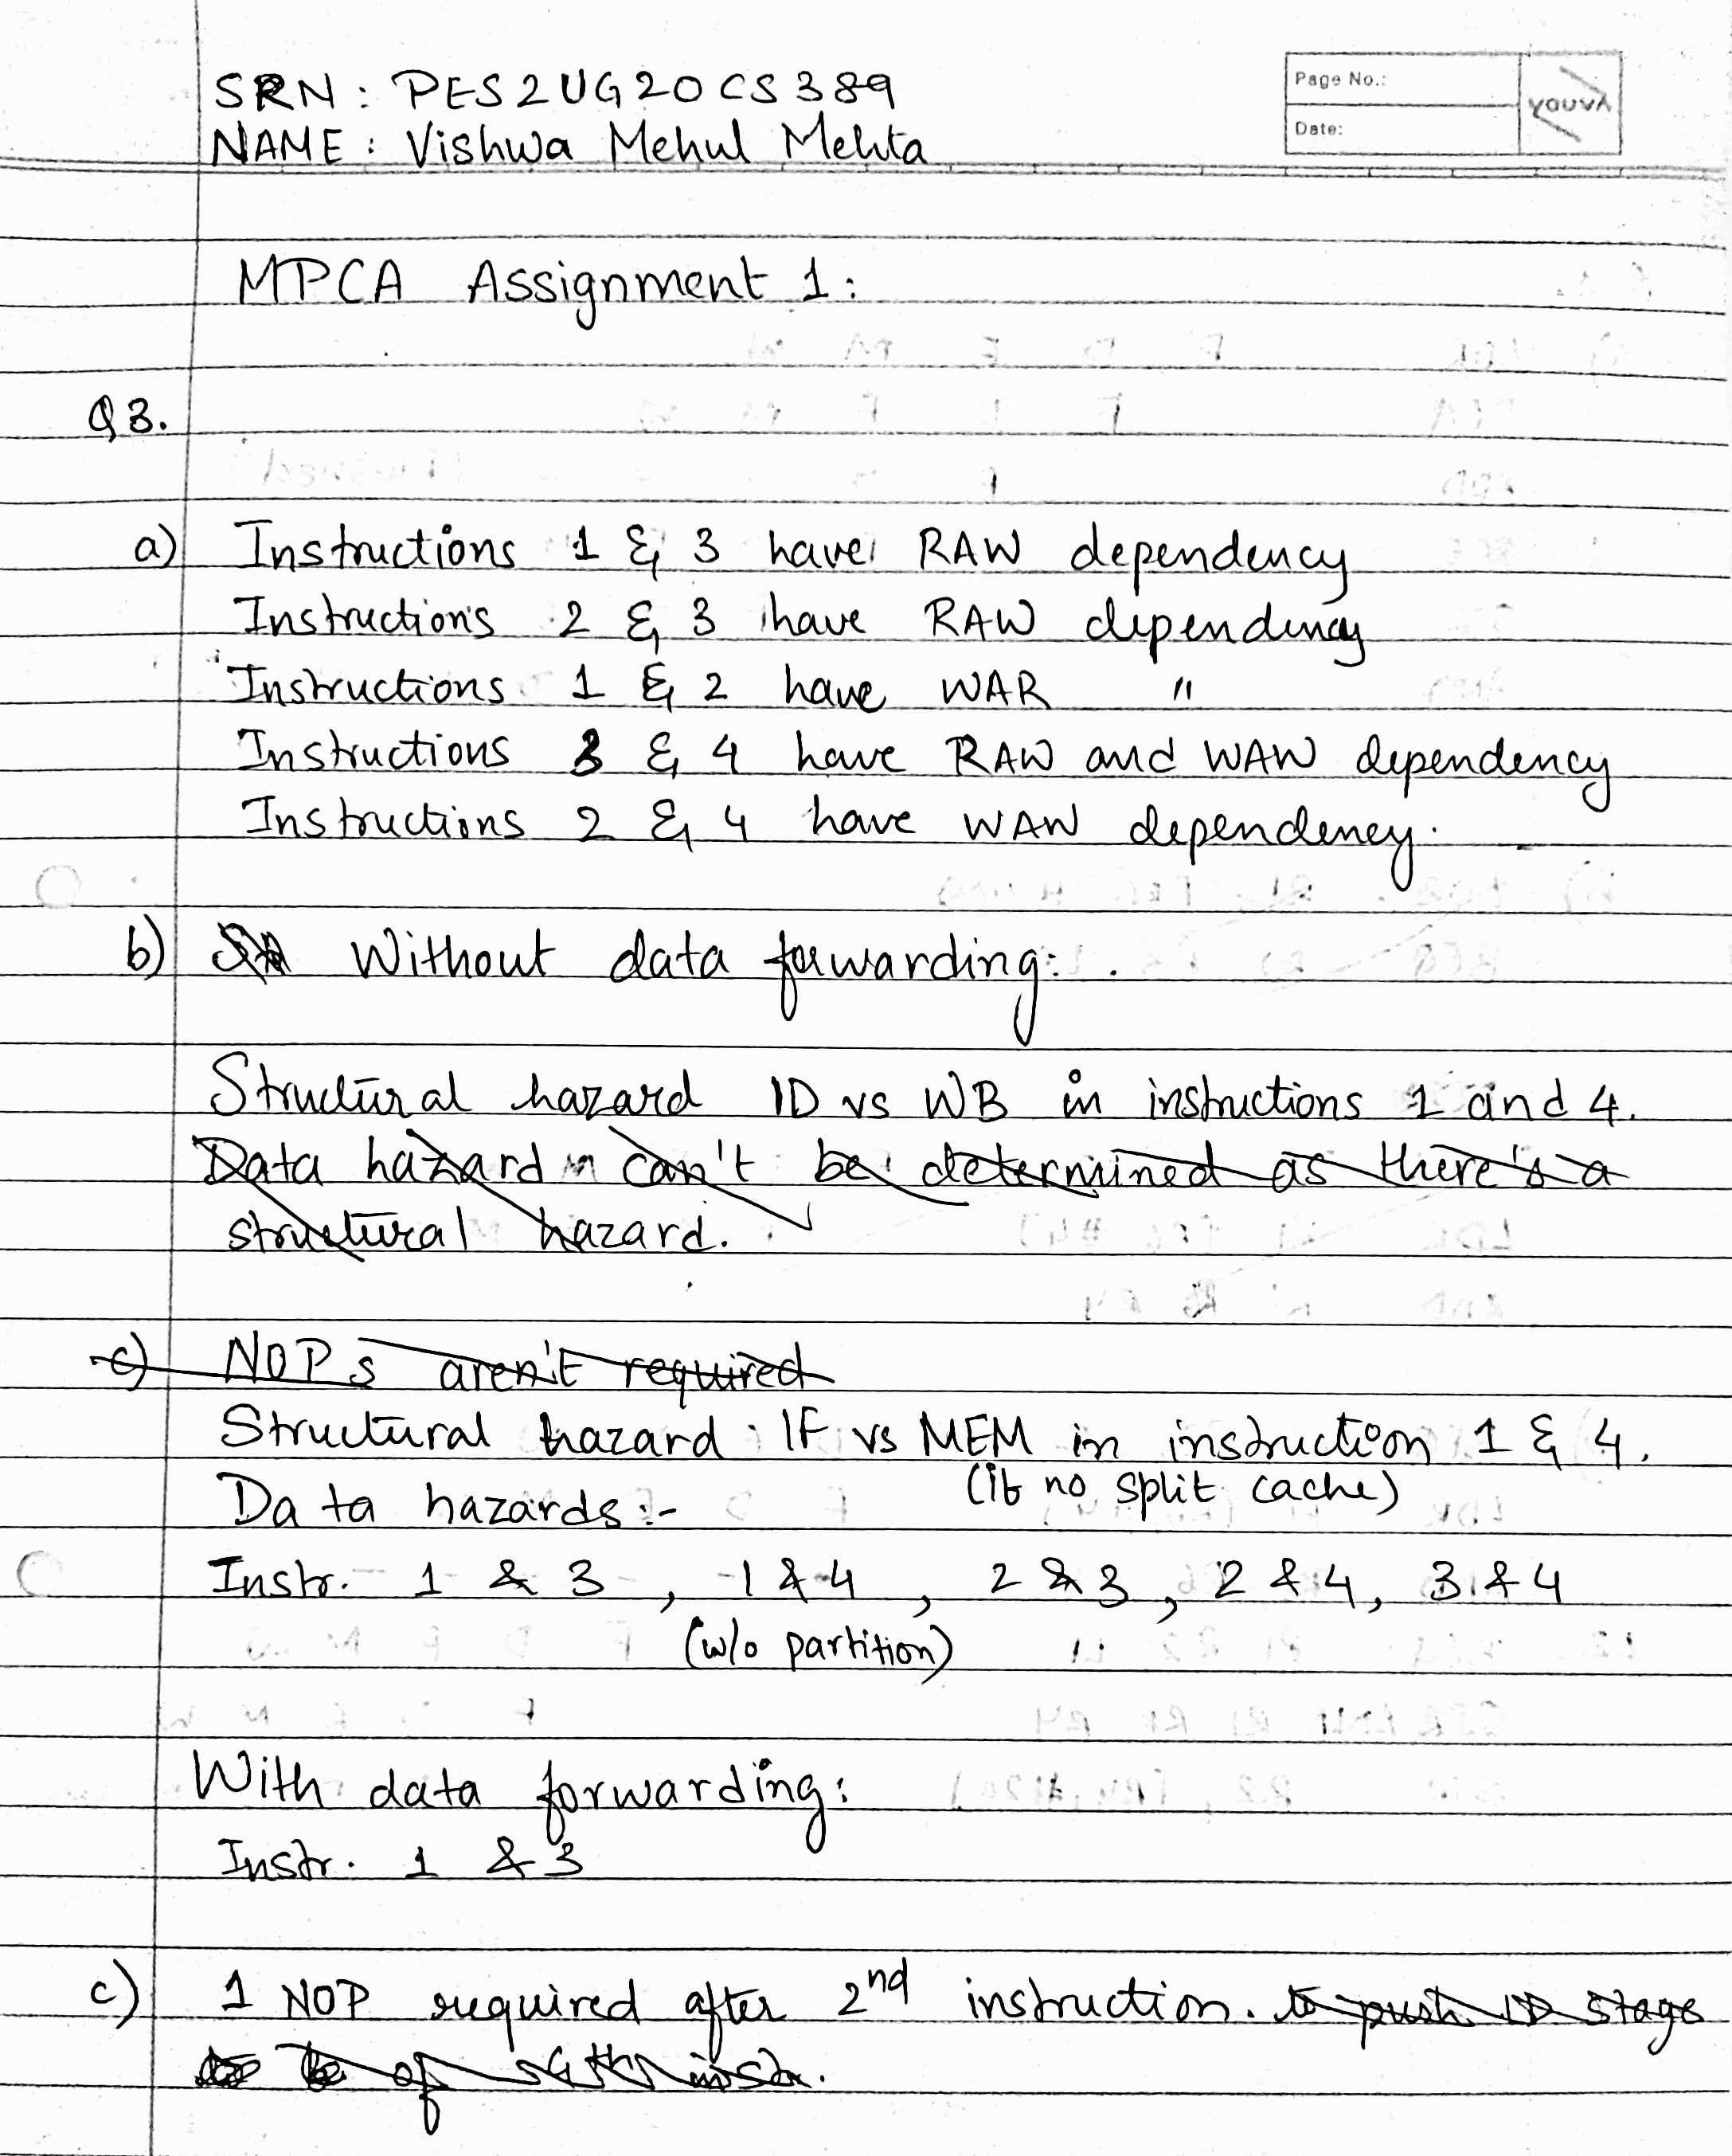 SRN : PES2UG20CS389
NAME : Vishwa Mehul Mehta
Page No.:
Date:
YOUVA
MPCA Assignment 1 :
Q3.
a) Instructions 1 & 3 have RAW dependency
Instructions 2 & 3 have RAW dependency
Instructions 1 & 2 have WAR "
Instructions 3 & 4 have RAW and WAW dependency
Instructions 2 & 4 have WAW dependency.
b) Without data forwarding:
Structural hazard ID vs WB in instructions 1 and 4.
Data hazard can't be determined as there's a
structural hazard.
c) NOPs aren't required
Structural hazard : IF vs MEM in instruction 1 & 4.
(if no split cache)
Data hazards :-
Instr. 1 & 3 , 1 & 4 , 2 & 3 , 2 & 4, 3 & 4
(w/o partition)
With data forwarding:
Instr. 1 & 3
c) 1 NOP required after 2nd instruction. to push ID stage
of